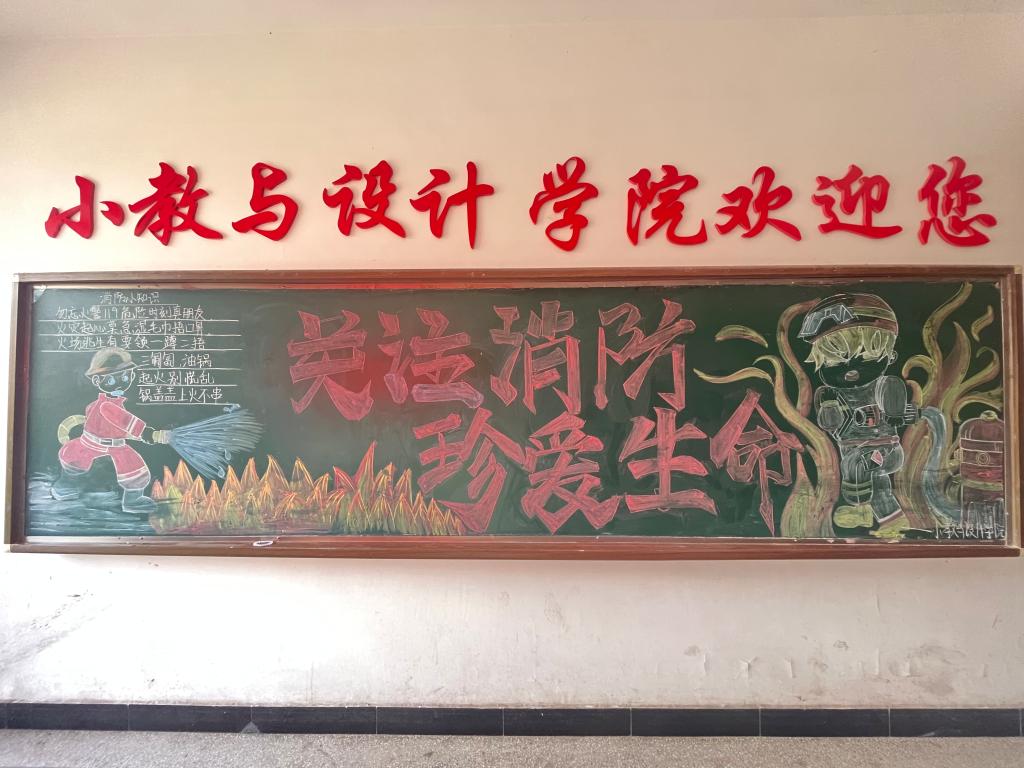 小教与设计学院欢迎您
消防小知识
勿忘火警119危险时刻真朋友
火灾起心莫急湿毛巾捂口鼻
火场逃生有要领一蹲二捂
三匍匐 油锅
起火别慌乱
锅盖盖上火不串
关注消防
珍爱生命
小教与设计学院